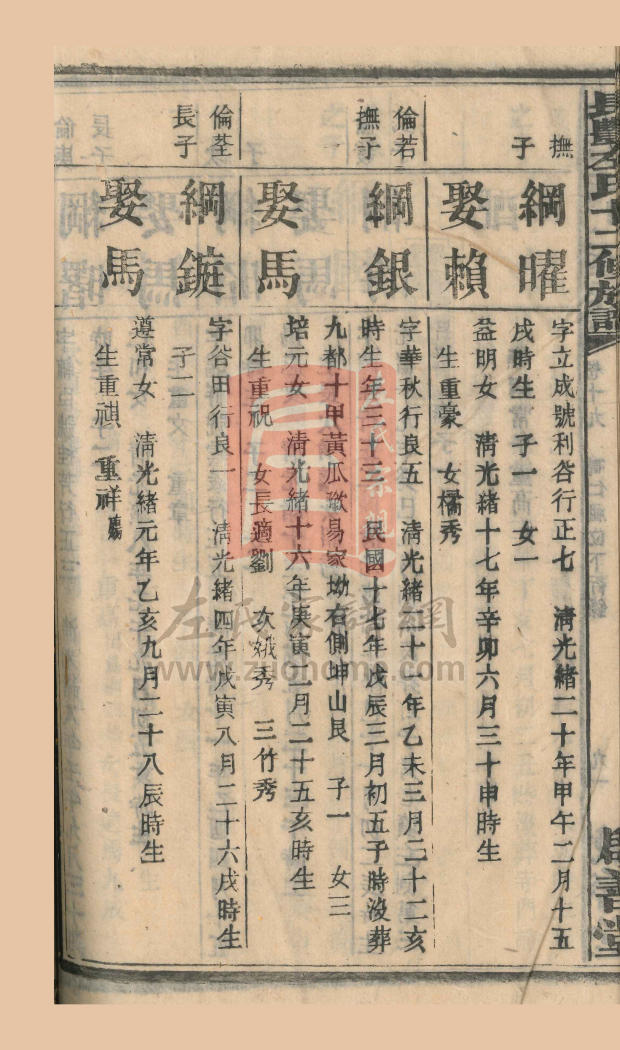 氏十二修族譜
善堂
撫
之子
綱曜
字立成號利咨行正七 清光緒二十年甲午二月十五
戌時生 子一 女一
娶賴
益明女 清光緒十七年辛卯六月三十申時生
生重豪 女橘秀
倫若
撫子
綱銀
字華秋行良五 清光緒二十一年乙未三月二十二亥
時生年三十三 民國十七年戊辰三月初五子時没葬
九都十甲黃瓜墩易家坳右側坤山艮 子一 女三
娶馬
培元女 清光緒十六年庚寅二月二十五亥時生
生重祝 女長適劉 次娥秀 三竹秀
倫荃
長子
綱鏇
字谷田行良一 清光緒四年戊寅八月二十六戌時生
子二
娶馬
遵常女 清光緒元年乙亥九月二十八辰時生
生重祺 重祥
左氏家譜網
www.zuohome.com